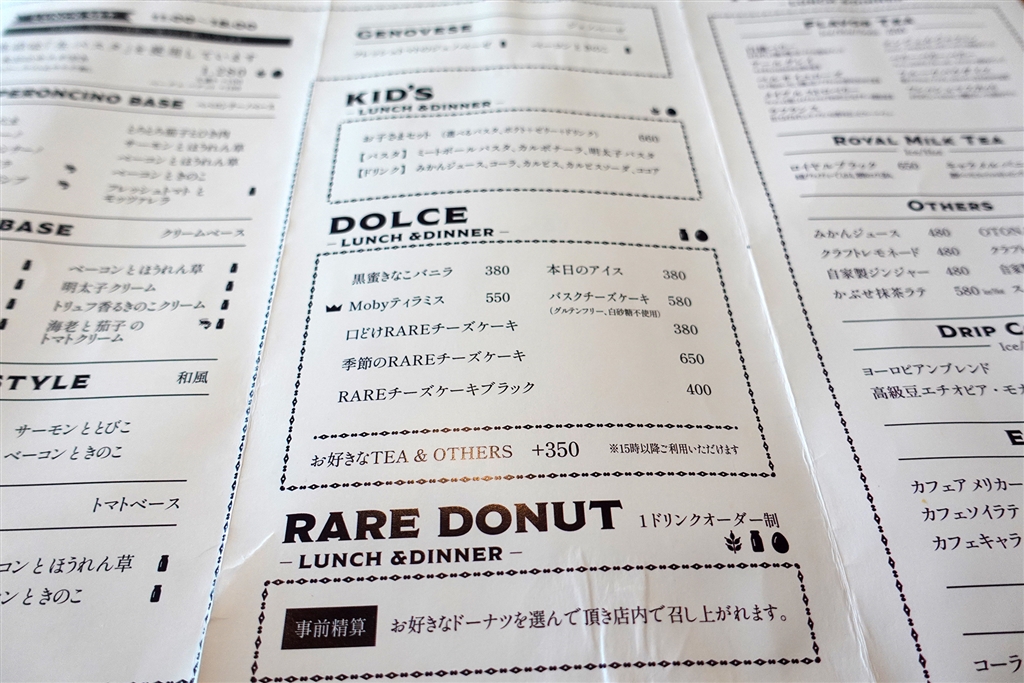 11:00〜18:00
1,280
PERONCINO BASE
サーモンとほうれん草
ベーコンとほうれん草
ベーコンときのこ
フレッシュトマトと
モッツァレラ
BASE クリームベース
ベーコンとほうれん草
明太子クリーム
トリュフ香るきのこクリーム
海老と茄子の
トマトクリーム
STYLE 和風
サーモンととびこ
ベーコンときのこ
トマトベース
コンとほうれん草
ンときのこ
GENOVESE ジェノベーゼ
ベーコンときのこ
KID'S
LUNCH & DINNER
お子さまセット (選べるパスタ、ポテト・ゼリー・ドリンク) 660
【パスタ】 ミートボールパスタ、カルボナーラ、明太子パスタ
【ドリンク】 みかんジュース、コーラ、カルピス、カルピスソーダ、ココア
DOLCE
– LUNCH & DINNER –
黒蜜きなこバニラ 380 本日のアイス 380
Mobyティラミス 550 バスクチーズケーキ 580
(グルテンフリー、白砂糖不使用)
口どけRAREチーズケーキ 380
季節のRAREチーズケーキ 650
RAREチーズケーキブラック 400
お好きなTEA & OTHERS +350 ※15時以降ご利用いただけます
RARE DONUT 1ドリンクオーダー制
– LUNCH & DINNER –
事前精算 お好きなドーナツを選んで頂き店内で召し上がれます。
LUNCH & DINNER
FLAVOR TEA
ROYAL MILK TEA
Ice/Hot
ロイヤルブラック 650 キャラメル
OTHERS
みかんジュース 480 OTON
クラフトレモネード 480 クラフ
自家製ジンジャー 480 自家
かぶせ抹茶ラテ 580 Ice/Hot ス
DRIP C
Ice/
ヨーロピアンブレンド
高級豆エチオピア・モカ
E
カフェアメリカー
カフェソイラテ
カフェキャラ
コーラ